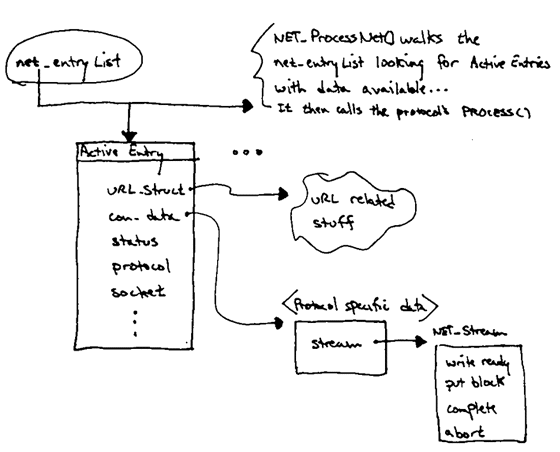 net_entry List
NET_ProcessNet() walks the
net_entry List looking for Active Entries
with data available...
It then calls the protocol's PROCESS()
Active Entry
...
URL_Struct
con_data
status
protocol
socket
URL related
stuff
<Protocol specific data>
stream
NET_Stream
write ready
put block
complete
abort